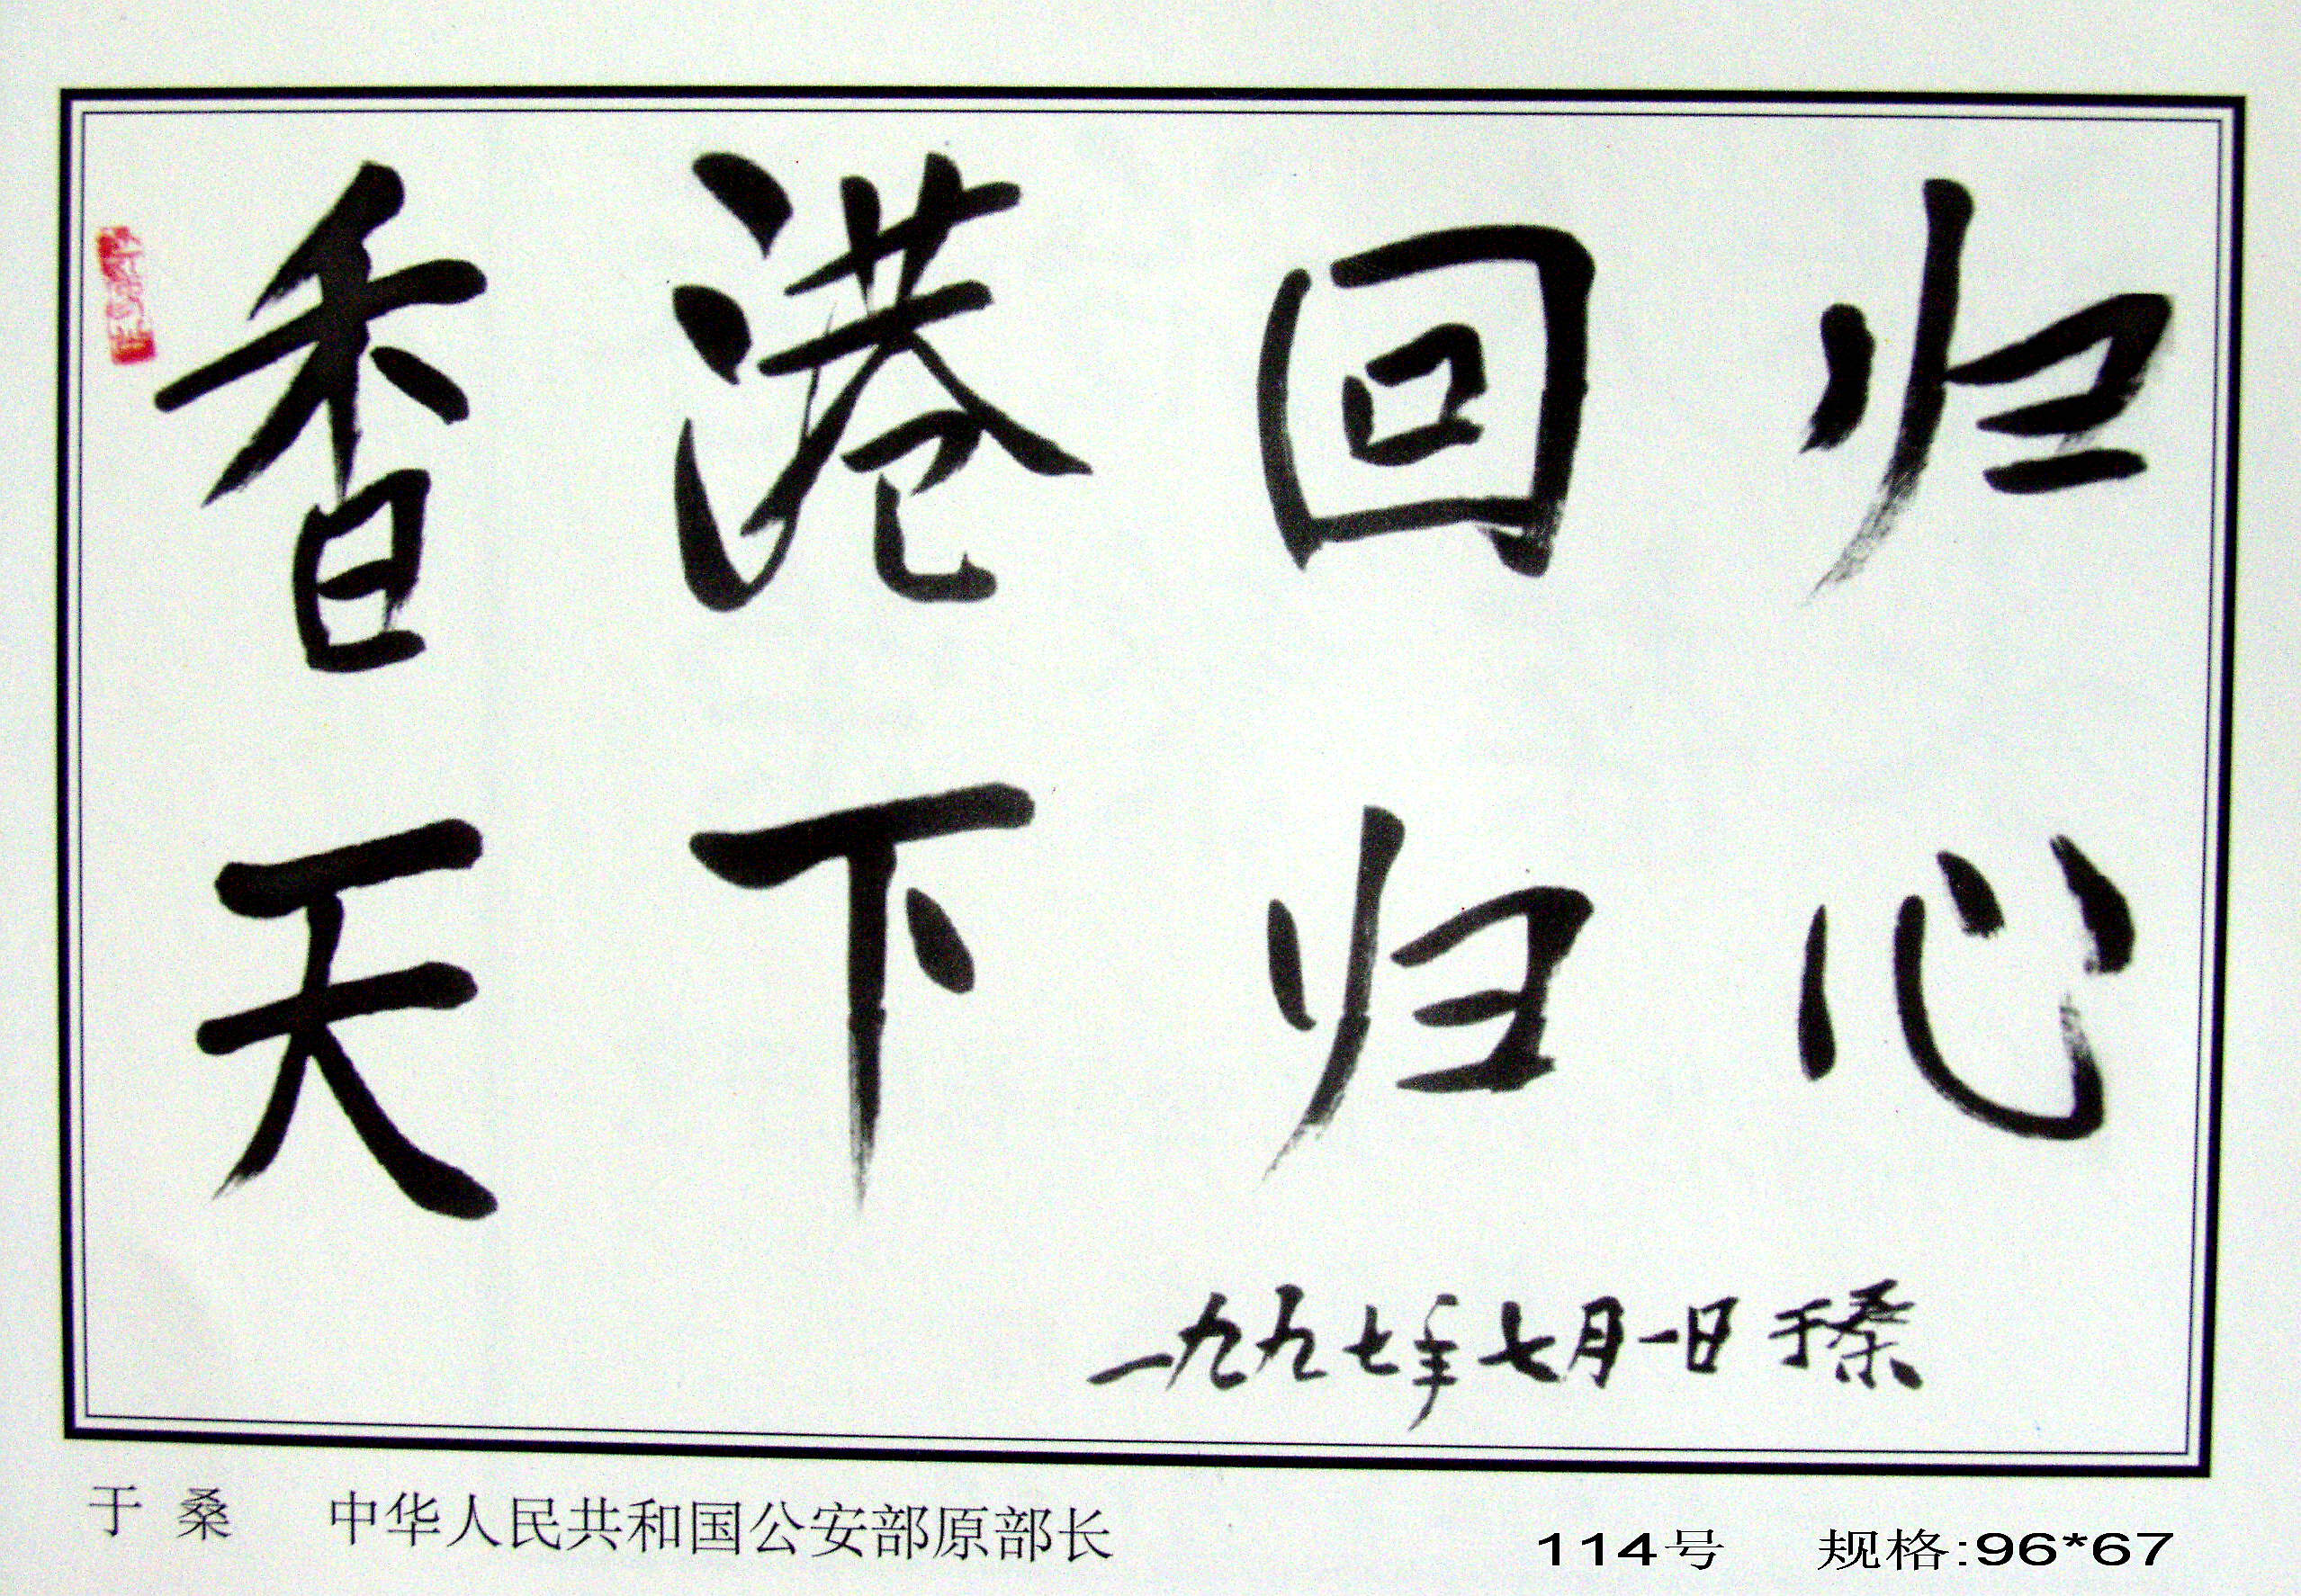 香港回归
天下归心
一九九七年七月一日 于桑
于桑 中华人民共和国公安部原部长
114号 规格:96*67